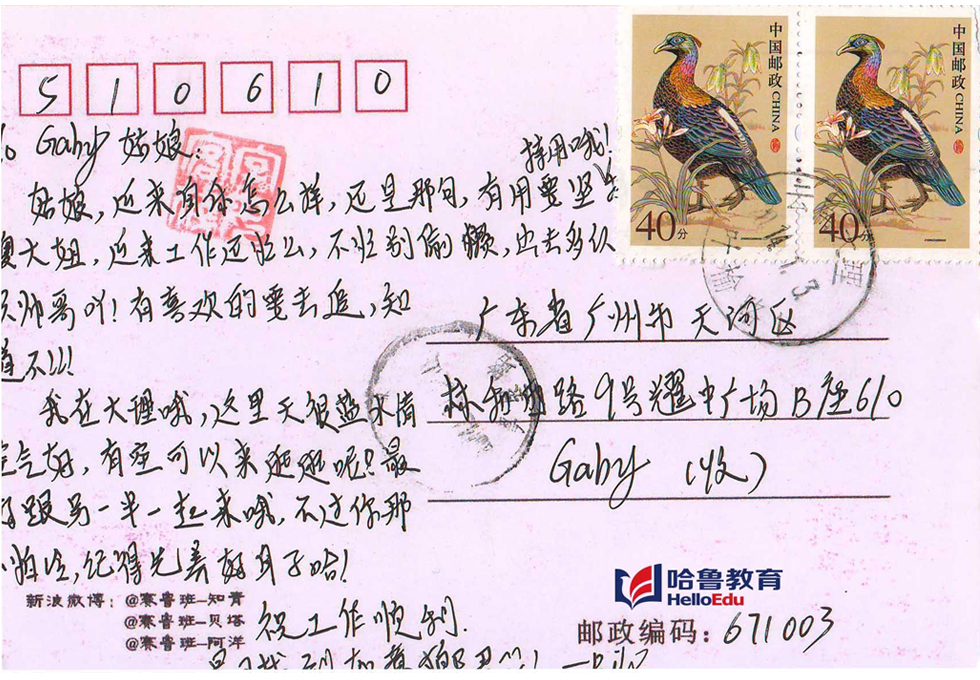 510610
Gaby 姑娘:
姑娘, 近来身体怎么样, 还是那句, 有用要坚
持用哦!
大姐, 近来工作还忙么, 不忙别偷懒, 出去多认
帅哥吖! 有喜欢的要去追, 知
道不!!!
我在大理哦, 这里天很蓝水清
空气好, 有空可以来逛逛呢? 最
好跟另一半一起来哦, 不过你那
怕冷, 记得先养好身子哈!
祝工作顺利.
中国邮政 CHINA
40分
中国邮政 CHINA
40分
广东省广州市天河区
林和西路9号耀中广场B座610
Gaby (收)
新浪微博: @赛鲁班—知青
@赛鲁班—贝塔
@赛鲁班—阿洋
哈鲁教育
HelloEdu
邮政编码: 671003